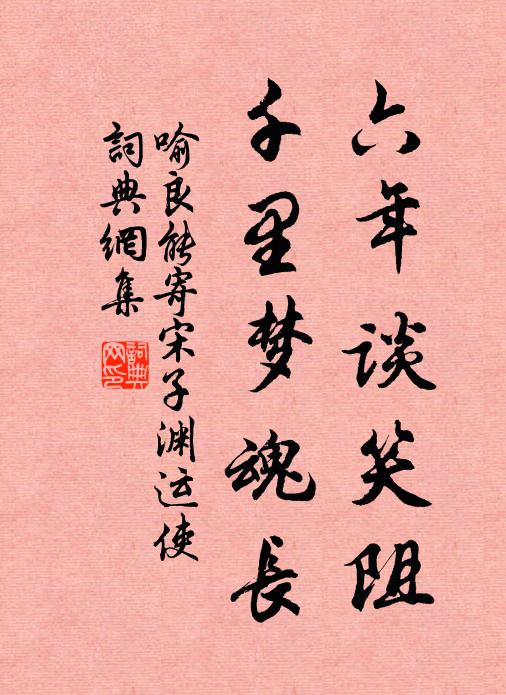 六年談笑阻
千里梦魂長
喻良能寄宋子渊运使
詞典網集
詞典网印